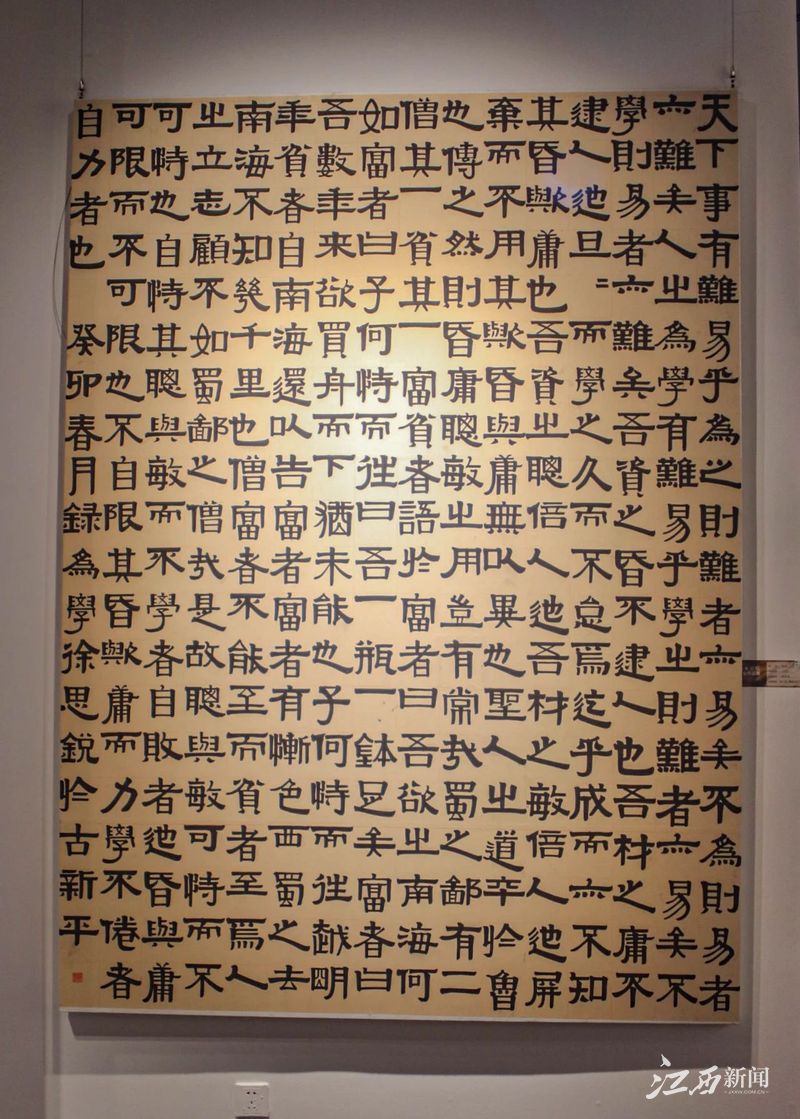 天下事有難易乎為之則難者亦易矣不為則易者
亦難矣人之為學有難易乎學之則難者亦易矣不
學則易者亦難矣吾資之昏不逮人也吾材之庸不
逮人也旦二而學之久而不怠焉迄乎成而亦不知
其昏歟庸也吾資之聰倍人也吾材之敏倍人也屏
棄而不用其歟昏與庸無以異也聖人之道卒於魯
也傳之然則昏庸聰敏之用豈有常哉蜀之鄙有二
僧其一貧其一富貧者語於富者曰吾欲之南海何
如富者曰子何恃而往曰吾一瓶一鉢足矣富者曰
吾數年來欲買舟而下猶未能也子何恃而往越明
年貧者自南海還以告富者富者有慚色西蜀之去
南海不知幾千里也僧富者不能至而貧者至焉人
之立志顧不如蜀鄙之僧哉是故聰與敏可恃而不
可恃也自恃其聰與敏而不學者自敗者也昏與庸
可限而不可限也不自限其昏歟庸而力學不倦者
自力者也 癸卯春月錄為學徐思銳於古新平
江西新闻
JXXW.COM.CN